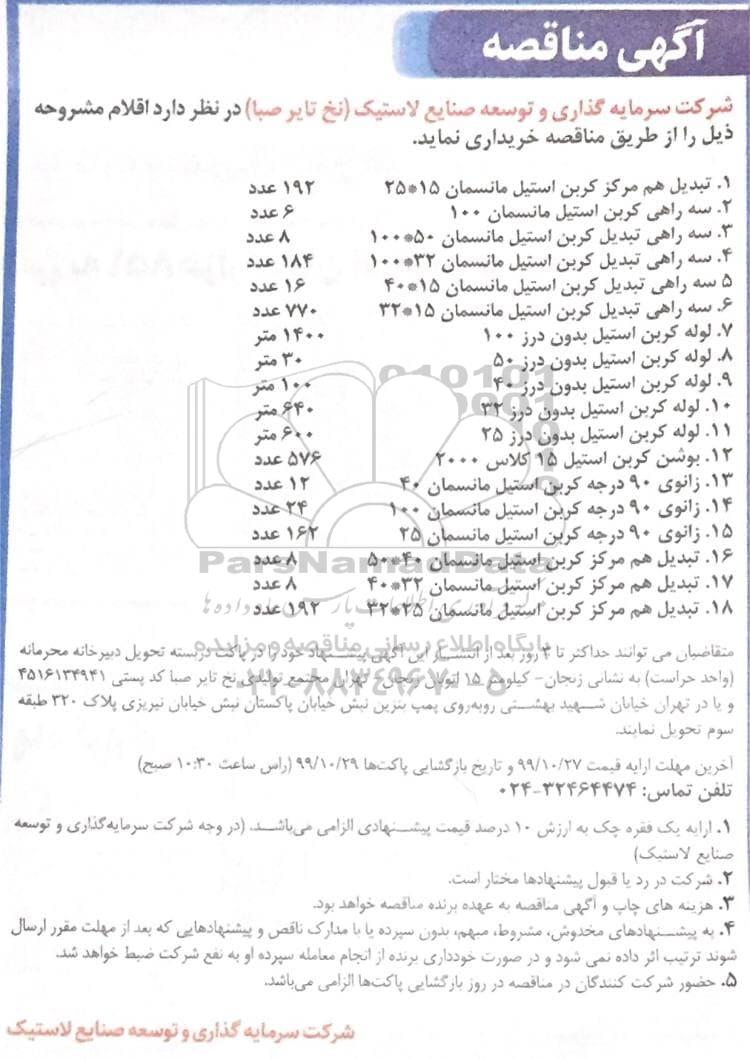 آگهی مناقصه
شرکت سرمایه گذاری و توسعه صنایع لاستیک (نخ تایر صبا) در نظر دارد اقلام مشروحه
ذیل را از طریق مناقصه خریداری نماید.
۱. تبدیل هم مرکز کربن استیل مانسمان ۱۵*۲۵ ۱۹۲ عدد
۲. سه راهی کربن استیل مانسمان ۱۰۰ ۶ عدد
۳. سه راهی تبدیل کربن استیل مانسمان ۵۰*۱۰۰ ۸ عدد
۴. سه راهی تبدیل کربن استیل مانسمان ۳۲*۱۰۰ ۱۸۴ عدد
۵ سه راهی تبدیل کربن استیل مانسمان ۱۵*۴۰ ۱۶ عدد
۶. سه راهی تبدیل کربن استیل مانسمان ۱۵*۳۲ ۷۷۰ عدد
۷. لوله کربن استیل بدون درز ۱۰۰ ۱۴۰۰ متر
۸. لوله کربن استیل بدون درز ۵۰ ۳۰ متر
۹. لوله کربن استیل بدون درز ۴۰ ۱۰۰ متر
۱۰. لوله کربن استیل بدون درز ۳۲ ۶۴۰ متر
۱۱. لوله کربن استیل بدون درز ۲۵ ۶۰۰ متر
۱۲. بوشن کربن استیل ۱۵ کلاس ۲۰۰۰ ۵۷۶ عدد
۱۳. زانوی ۹۰ درجه کربن استیل مانسمان ۴۰ ۱۲ عدد
۱۴. زانوی ۹۰ درجه کربن استیل مانسمان ۱۰۰ ۲۴ عدد
۱۵. زانوی ۹۰ درجه کربن استیل مانسمان ۲۵ ۱۶۲ عدد
۱۶. تبدیل هم مرکز کربن استیل مانسمان ۴۰*۵۰ ۸ عدد
۱۷. تبدیل هم مرکز کربن استیل مانسمان ۳۲*۴۰ ۸ عدد
۱۸. تبدیل هم مرکز کربن استیل مانسمان ۲۵*۳۲ ۱۹۲ عدد
ParsNamadData
پایگاه اطلاع رسانی مناقصه و مزایده
متقاضیان می توانند حداکثر تا ۴ روز بعد از انتشار این آگهی پیشنهاد خود را در پاکت دربسته تحویل دبیرخانه محرمانه
(واحد حراست) به نشانی زنجان- کیلومتر ۱۵ اتوبان زنجان - تهران مجتمع تولیدی نخ تایر صبا کد پستی ۴۵۱۶۱۳۴۹۴۱
و یا در تهران خیابان شهید بهشتی روبه‌روی پمپ بنزین نبش خیابان پاکستان نبش خیابان تبریزی پلاک ۳۲۰ طبقه
سوم تحویل نمایند.
آخرین مهلت ارایه قیمت ۹۹/۱۰/۲۷ و تاریخ بازگشایی پاکت‌ها ۹۹/۱۰/۲۹ (راس ساعت ۱۰:۳۰ صبح)
تلفن تماس: ۳۲۴۶۴۴۷۴-۰۲۴
۱. ارایه یک فقره چک به ارزش ۱۰ درصد قیمت پیشنهادی الزامی می‌باشد. (در وجه شرکت سرمایه‌گذاری و توسعه
صنایع لاستیک)
۲. شرکت در رد یا قبول پیشنهادها مختار است.
۳. هزینه های چاپ و آگهی مناقصه به عهده برنده مناقصه خواهد بود.
۴. به پیشنهادهای مخدوش، مشروط، مبهم، بدون سپرده یا با مدارک ناقص و پیشنهادهایی که بعد از مهلت مقرر ارسال
شوند ترتیب اثر داده نمی شود و در صورت خودداری برنده از انجام معامله سپرده او به نفع شرکت ضبط خواهد شد.
۵. حضور شرکت کنندگان در مناقصه در روز بازگشایی پاکت‌ها الزامی می‌باشد.
شرکت سرمایه گذاری و توسعه صنایع لاستیک